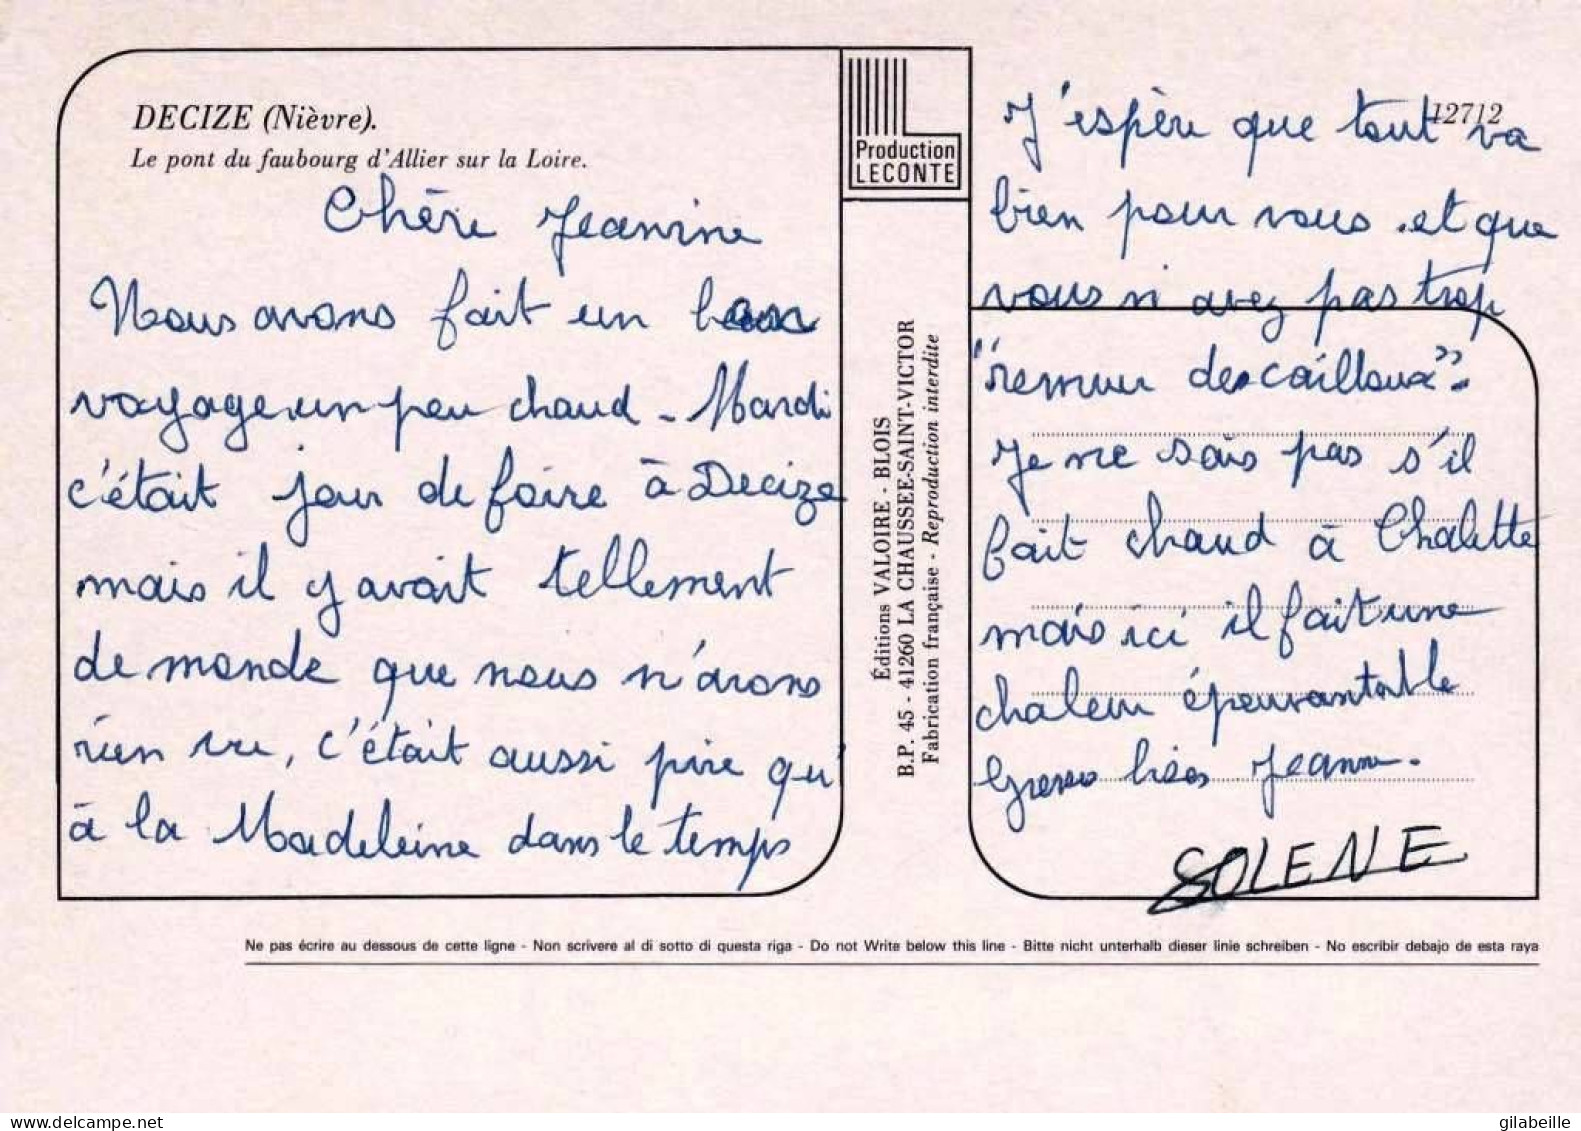 DECIZE (Nièvre).
Le pont du faubourg d'Allier sur la Loire.
Chère Jeanine
Nous avons fait un bon
voyage un peu chaud - Mardi
c'était jour de foire à Decize
mais il y avait tellement
de monde que nous n'avons
rien vu, c'était aussi pire qu'
à la Madeleine dans le temps
Production
LECONTE
Éditions VALOIRE - BLOIS
B.P. 45 - 41260 LA CHAUSSEE-SAINT-VICTOR
Fabrication française - Reproduction interdite
12712
J'espère que tout va
bien pour vous et que
vous n'avez pas trop
"remuer des cailloux".
Je ne sais pas s'il
fait chaud à Chalette
mais ici il fait une
chaleur épouvantable
Grosses bises Jeanne.
SOLENE
Ne pas écrire au dessous de cette ligne - Non scrivere al di sotto di questa riga - Do not Write below this line - Bitte nicht unterhalb dieser linie schreiben - No escribir debajo de esta raya
delcampe.net
gilabeille